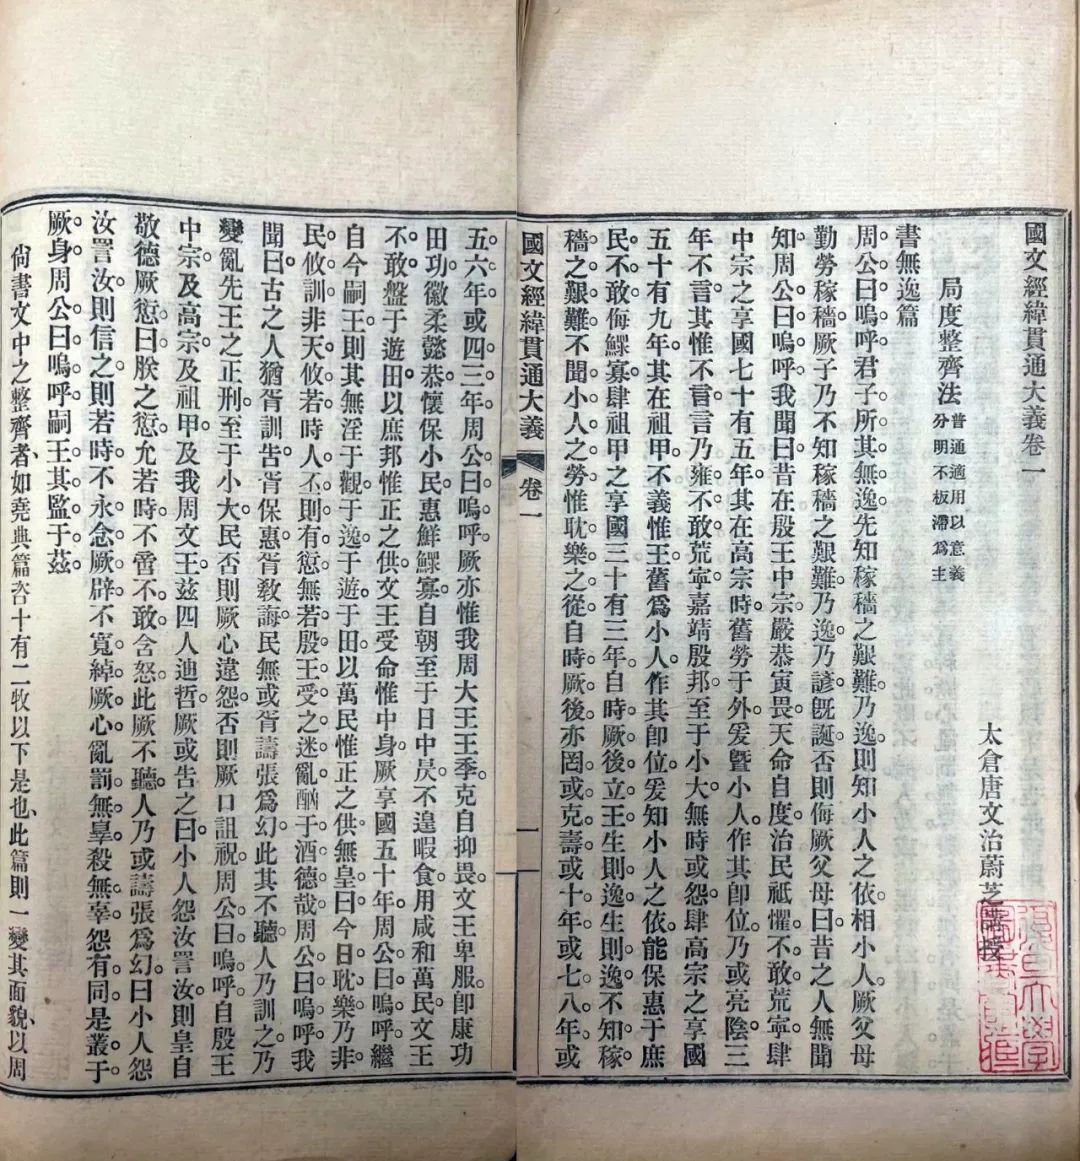 國文經緯貫通大義卷一
太倉唐文治蔚芝講授
局度整齊法 普通適用以意義分明不板滯爲主
書無逸篇
周公曰嗚呼君子所其無逸先知稼穡之艱難乃逸則知小人之依相小人厥父母
勤勞稼穡厥子乃不知稼穡之艱難乃逸乃諺旣誕否則侮厥父母曰昔之人無聞
知周公曰嗚呼我聞曰昔在殷王中宗嚴恭寅畏天命自度治民祗懼不敢荒寧肆
中宗之享國七十有五年其在高宗時舊勞于外爰曁小人作其卽位乃或亮陰三
年不言其惟不言言乃雍不敢荒寧嘉靖殷邦至于小大無時或怨肆高宗之享國
五十有九年其在祖甲不義惟王舊爲小人作其卽位爰知小人之依能保惠于庶
民不敢侮鰥寡肆祖甲之享國三十有三年自時厥後立王生則逸生則逸不知稼
穡之艱難不聞小人之勞惟耽樂之從自時厥後亦罔或克壽或十年或七八年或
國文經緯貫通大義 卷一 一
五六年或四三年周公曰嗚呼厥亦惟我周大王王季克自抑畏文王卑服卽康功
田功徽柔懿恭懷保小民惠鮮鰥寡自朝至于日中昃不遑暇食用咸和萬民文王
不敢盤于遊田以庶邦惟正之供文王受命惟中身厥享國五十年周公曰嗚呼繼
自今嗣王則其無淫于觀于逸于遊于田以萬民惟正之供無皇曰今日耽樂乃非
民攸訓非天攸若時人丕則有愆無若殷王受之迷亂酗于酒德哉周公曰嗚呼我
聞曰古之人猶胥訓告胥保惠胥敎誨民無或胥譸張爲幻此其不聽人乃訓之乃
變亂先王之正刑至于小大民否則厥心違怨否則厥口詛祝周公曰嗚呼自殷王
中宗及高宗及祖甲及我周文王茲四人迪哲厥或告之曰小人怨汝詈汝則皇自
敬德厥愆曰朕之愆允若時不啻不敢含怒此厥不聽人乃或譸張爲幻曰小人怨
汝詈汝則信之則若時不永念厥辟不寬綽厥心亂罰無辠殺無辜怨有同是叢于
厥身周公曰嗚呼嗣王其監于茲
尙書文中之整齊者如堯典篇咨十有二牧以下是也此篇則一變其面貌以周